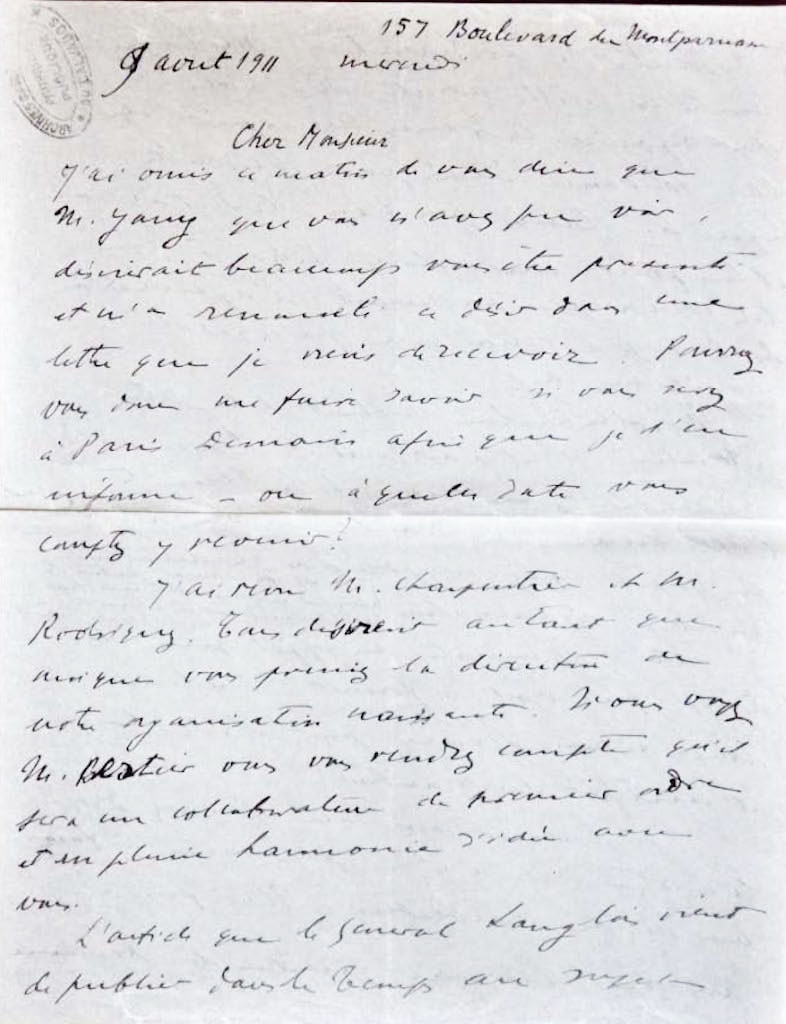 157 Boulevard du Montparnasse
9 aout 1911 mercredi
Cher Monsieur
J'ai omis ce matin de vous dire que
M. que vous n'avez pu voir,
désirerait beaucoup vous être présenté
et m'a renouvelé ce désir dans une
lettre que je viens de recevoir. Pourrez
vous donc me faire savoir si vous serez
à Paris Demain afin que je l'en
informe - ou à quelle date vous
comptez y revenir?
J'ai revu M. Charpentier et M.
Rodrigues. Tous désirent autant que
moi que vous preniez la direction de
notre organisation naissante. Si vous voyez
M. vous vous rendrez compte qu'il
sera un collaborateur de premier ordre
et en pleine harmonie d'idée avec
vous.
L'article que le général Langlois vient
de publier dans le Temps au sujet